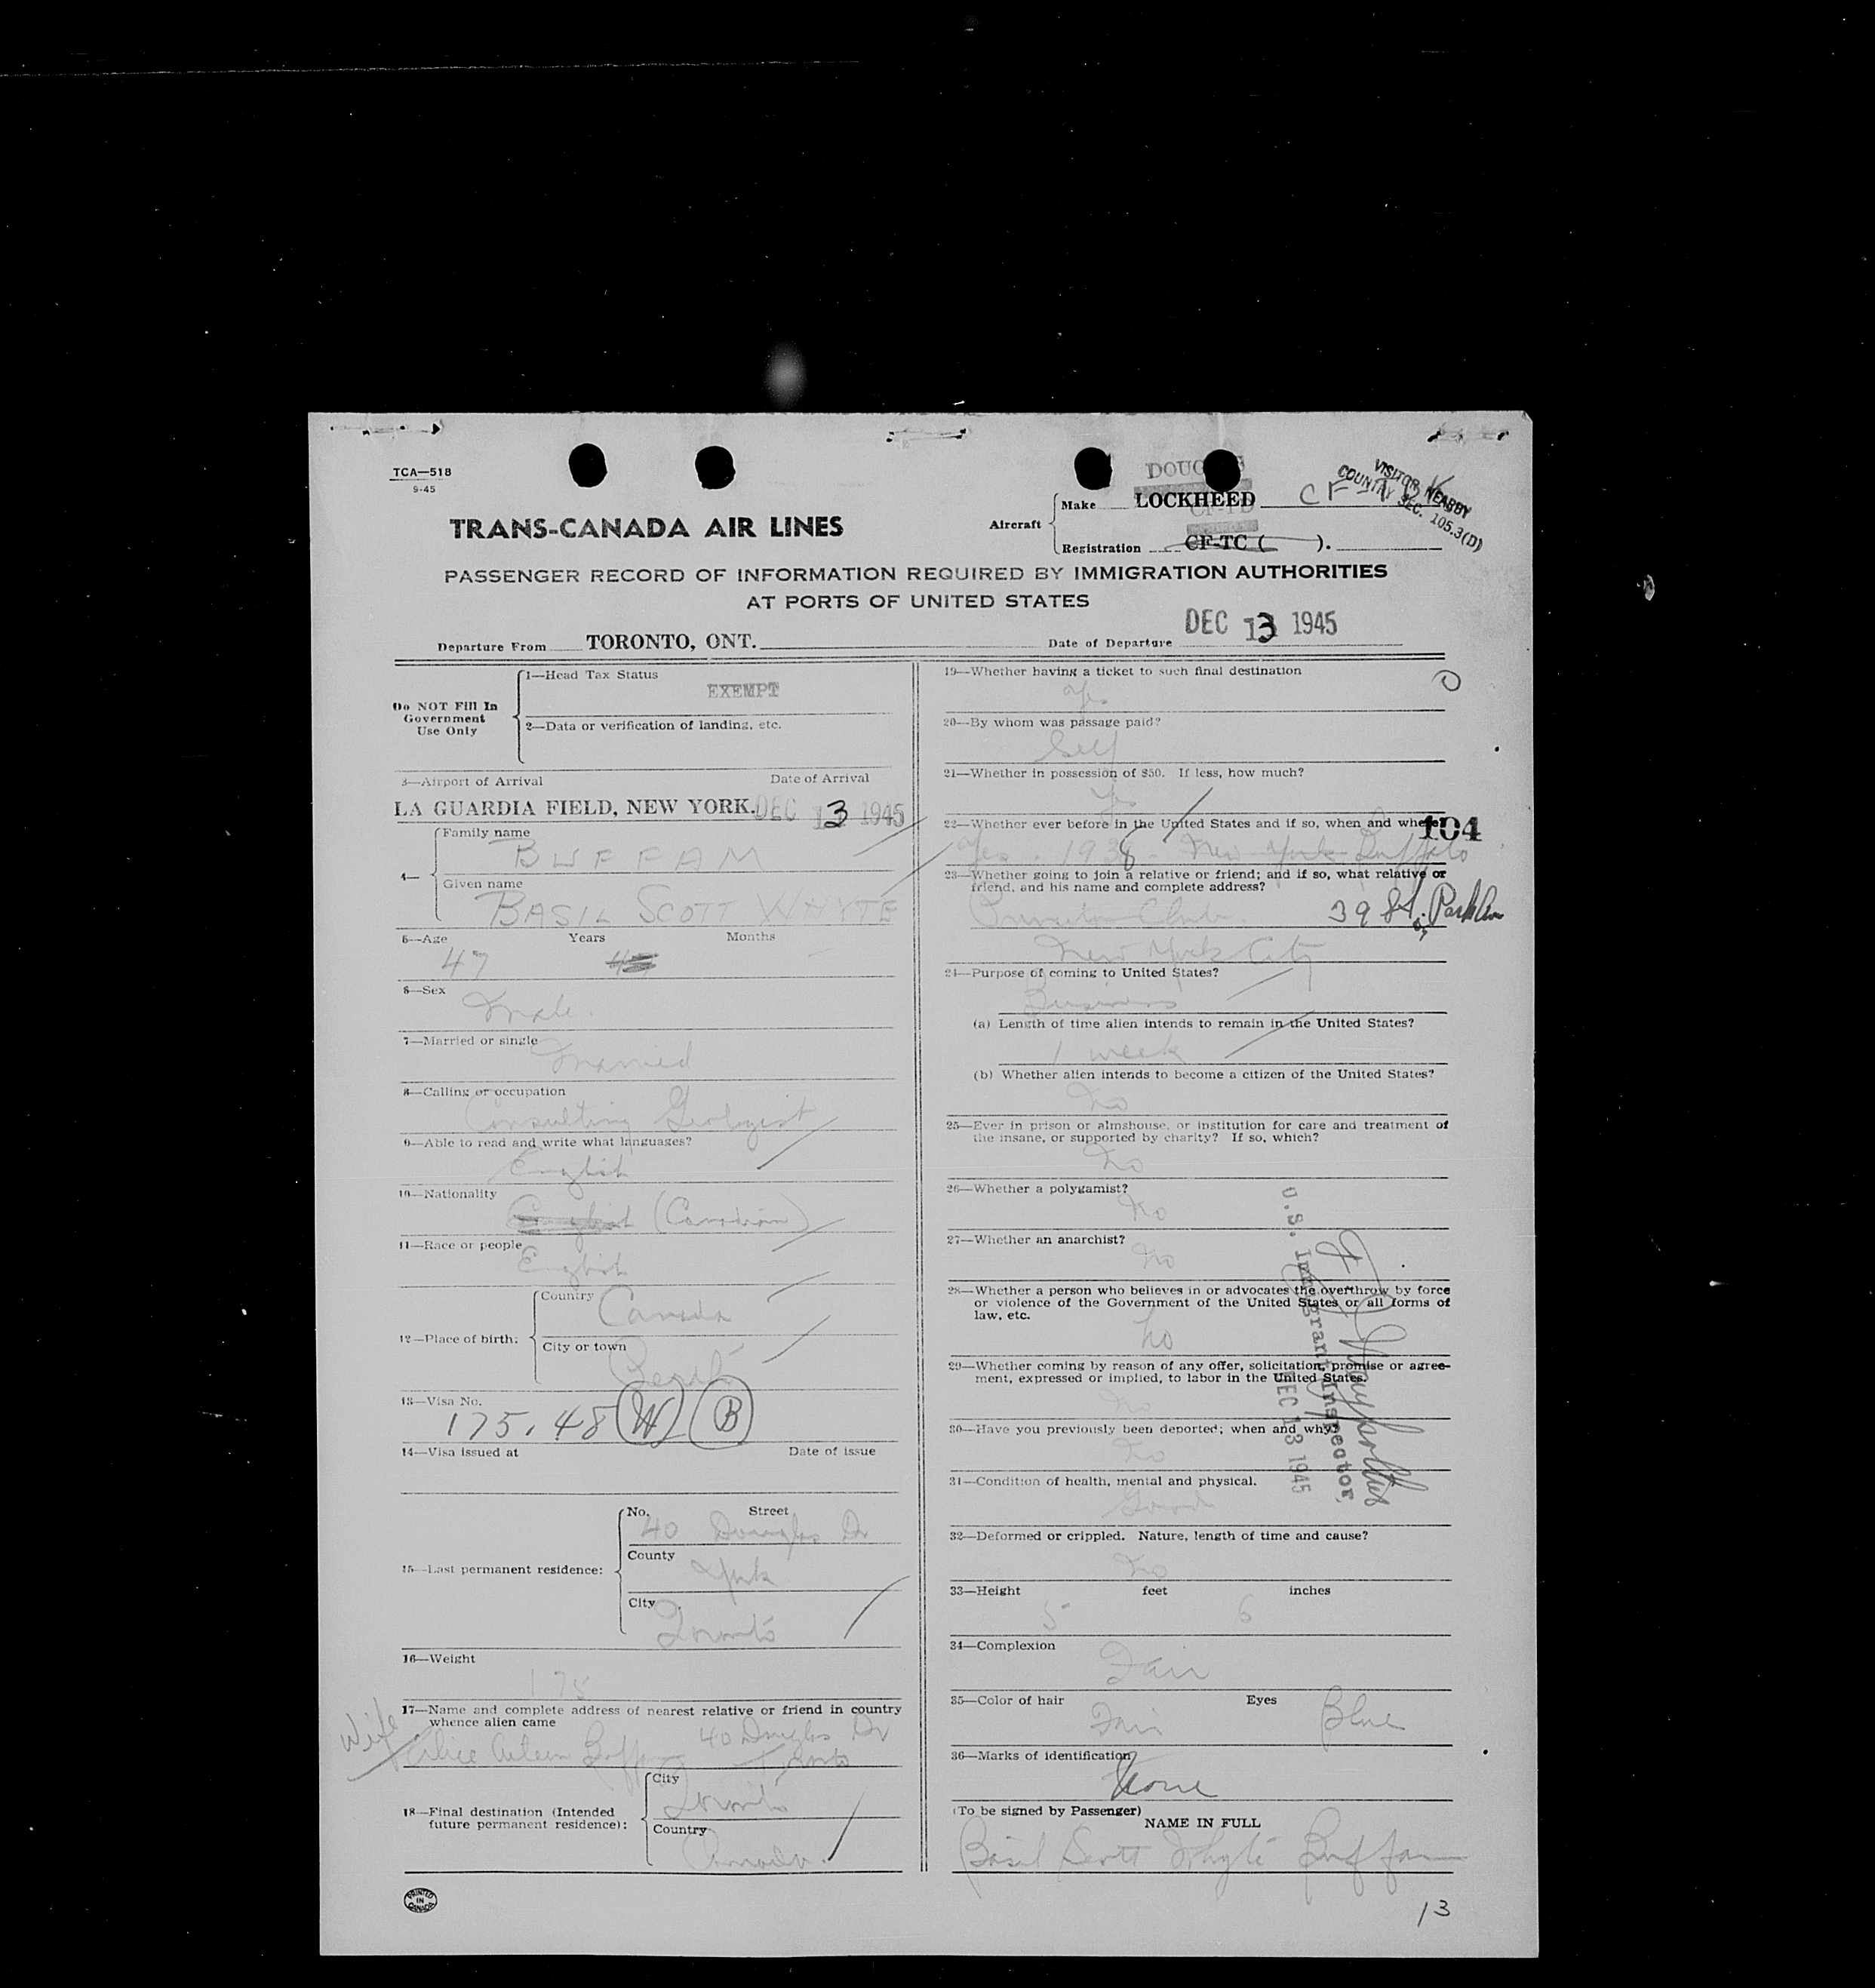 TCA—518
9-45
DOUG
VISITOR NEARBY
COUNTRY SEC. 105.3(D)
TRANS-CANADA AIR LINES
Aircraft
Make LOCKHEED CF
CF-TD
Registration CF-TC ( ).
PASSENGER RECORD OF INFORMATION REQUIRED BY IMMIGRATION AUTHORITIES
AT PORTS OF UNITED STATES
Departure From TORONTO, ONT. Date of Departure DEC 13 1945
Do NOT Fill In
Government
Use Only
1—Head Tax Status
EXEMPT
2—Data or verification of landing, etc.
3—Airport of Arrival Date of Arrival
LA GUARDIA FIELD, NEW YORK. DEC 13 1945
4—
Family name
BUFFAM
Given name
BASIL SCOTT WHYTE
5—Age Years Months
47
6—Sex
Male
7—Married or single
Married
8—Calling or occupation
Consulting Geologist
9—Able to read and write what languages?
English
10—Nationality
English (Canadian)
11—Race or people
English
12—Place of birth:
Country
Canada
City or town
13—Visa No.
175.48 W B
14—Visa issued at Date of issue
15—Last permanent residence:
No. Street
40 Douglas Dr
County
York
City
Toronto
16—Weight
175
17—Name and complete address of nearest relative or friend in country
whence alien came
Wife
Alice Aileen Buffam 40 Douglas Dr
Toronto
18—Final destination (Intended
future permanent residence):
City
Toronto
Country
Canada.
PRINTED
IN
CANADA
19—Whether having a ticket to such final destination
Yes
20—By whom was passage paid?
Self
21—Whether in possession of $50. If less, how much?
Yes
22—Whether ever before in the United States and if so, when and where?
104
Yes. 1938 - New York Buffalo
23—Whether going to join a relative or friend; and if so, what relative or
friend, and his name and complete address?
Princeton Club 39 St. Park Ave
New York City
24—Purpose of coming to United States?
Business
(a) Length of time alien intends to remain in the United States?
1 week
(b) Whether alien intends to become a citizen of the United States?
No
25—Ever in prison or almshouse, or institution for care and treatment of
the insane, or supported by charity? If so, which?
No
26—Whether a polygamist?
No
27—Whether an anarchist?
No
28—Whether a person who believes in or advocates the overthrow by force
or violence of the Government of the United States or all forms of
law, etc.
No
29—Whether coming by reason of any offer, solicitation, promise or agree-
ment, expressed or implied, to labor in the United States.
No
30—Have you previously been deported; when and why?
No
U.S. Immigrant Inspector,
DEC 13 1945
31—Condition of health, mental and physical.
Good
32—Deformed or crippled. Nature, length of time and cause?
No
33—Height feet inches
5 6
34—Complexion
Fair
35—Color of hair Eyes
Fair Blue
36—Marks of identification
None
(To be signed by Passenger)
NAME IN FULL
Basil Scott Whyte Buffam
13